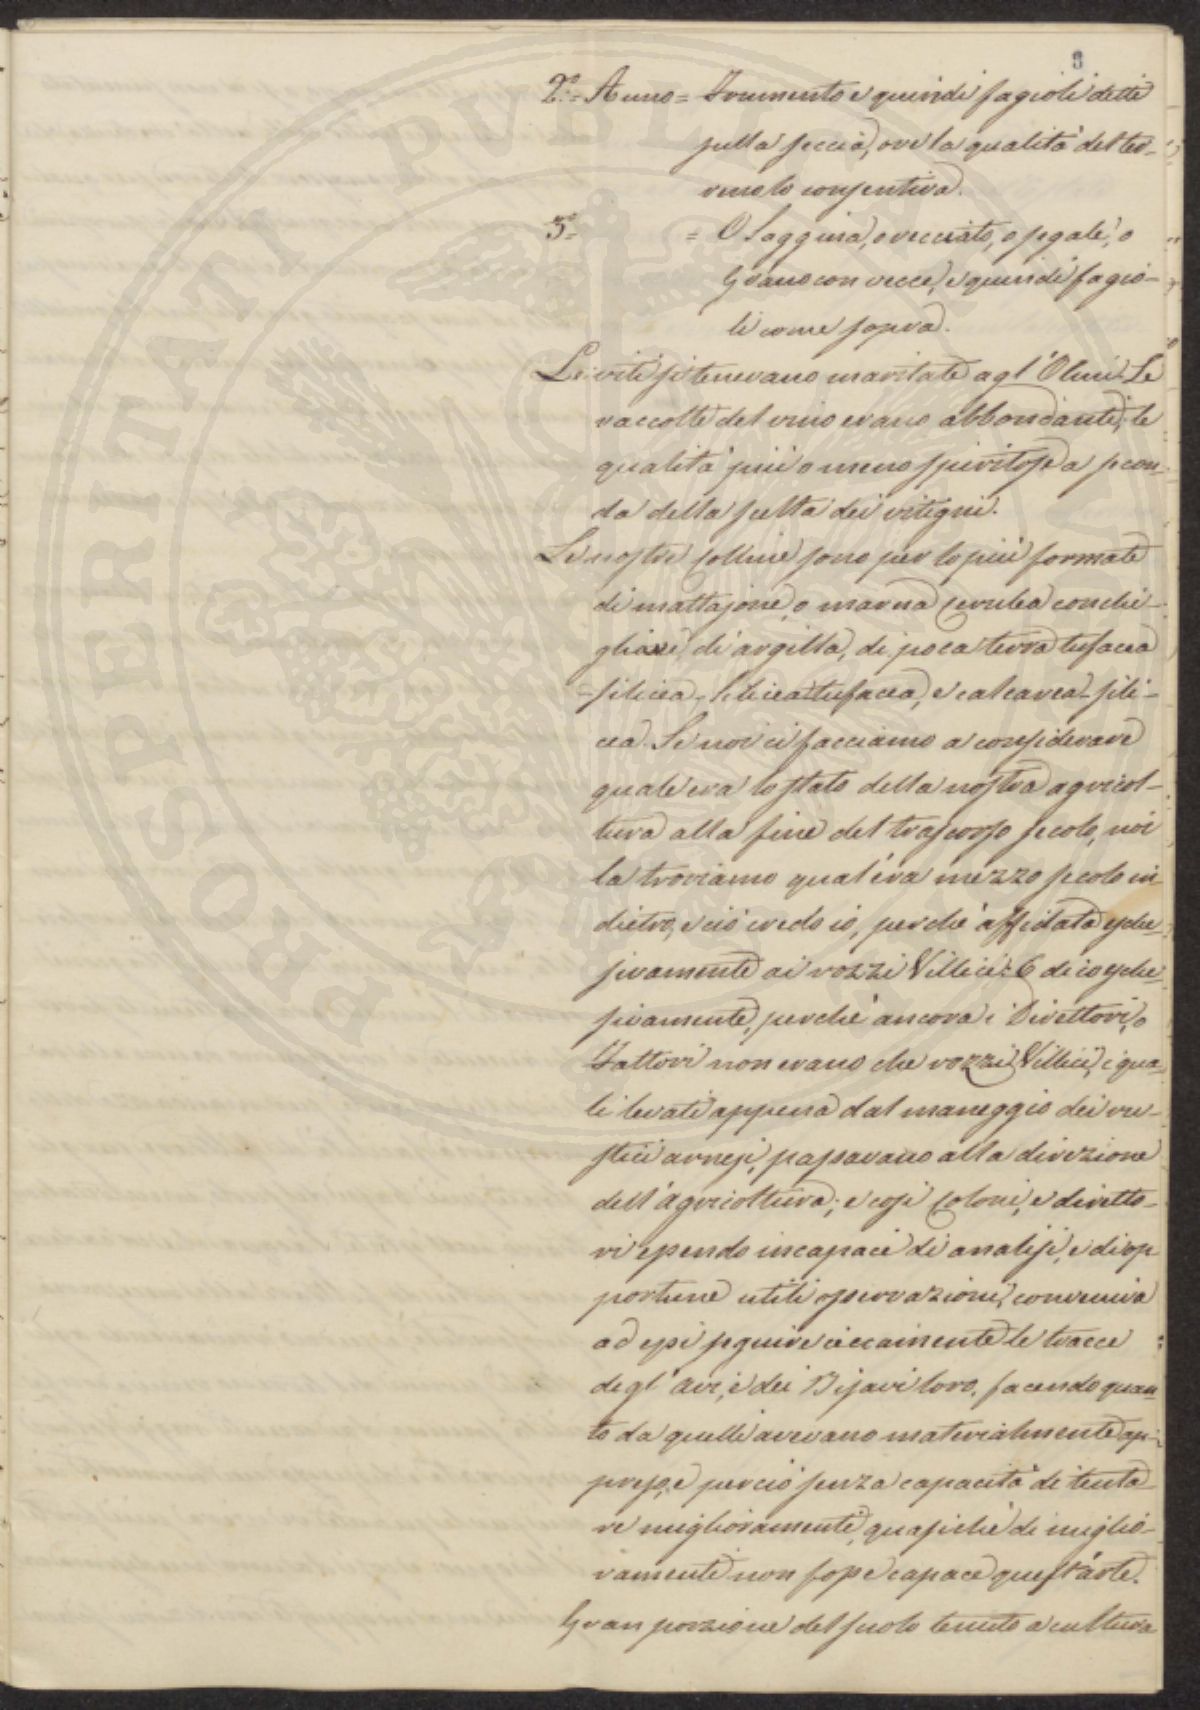 8
2.° = Anno = Frumento e quindi fagioli detti
sulla seccia, ove la qualità del ter-
reno lo consentiva.
3.° = = O Saggina, o vecciato, o segale, o
Grano con vecce, e quindi fagio-
li come sopra.
Le viti si tenevano maritate agl'Olmi. Le
raccolte del vino erano abbondanti; le
qualità più o meno spiritose a secon-
da della scelta dei vitigni.
Le nostre Colline sono per lo più formate
di mattajone, o marna cerulea conchi-
gliare, di argilla, di poca terra tufacea
=silicea, Silicea-tufacea, e calcarea-sili-
cea. Se noi ci facciamo a considerare
quale era lo stato della nostra agricol-
tura alla fine del trascorso secolo, noi
la troviamo qual'era mezzo secolo in
dietro, e ciò credo io, perchè affidata esclu-
sivamente ai rozzi Villici: E dico esclu-
sivamente, perchè ancora i Direttori, o
Fattori non erano che rozzi Villici, i qua-
li levati appena dal maneggio dei ru-
stici arnesi, passavano alla direzione
dell'agricoltura; e così Coloni, e diretto-
ri essendo incapaci di analisi, e di op-
portune utili osservazioni, conveniva
ad essi seguire ciecamente le tracce
degl'Avi, e dei Bisavi loro, facendo quan-
to da quelli avevano materialmente ap-
preso, e perciò senza capacità di tenta-
re miglioramenti, quasichè di miglio-
ramenti non fosse capace quest'arte.
Gran porzione del suolo tenuto a cultura
PROSPERITATI PVBLICAE